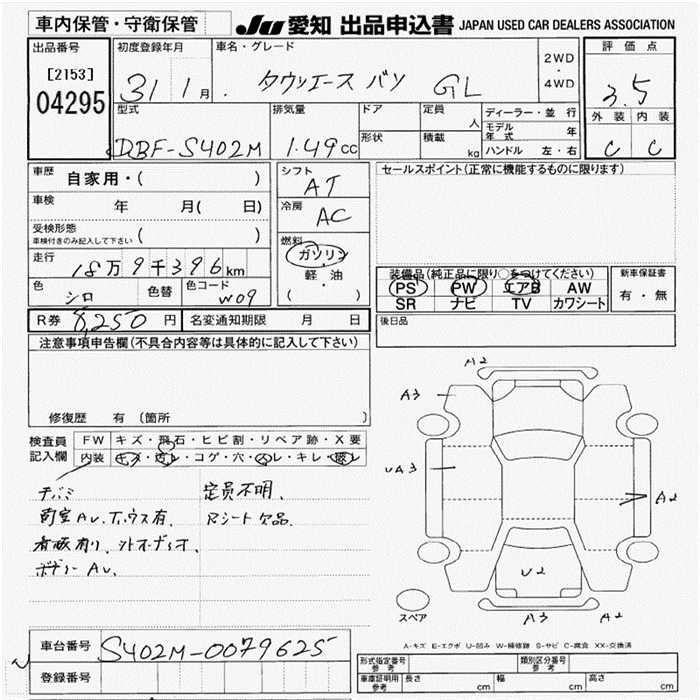 車内保管・守衛保管 JU 愛知 出品申込書 JAPAN USED CAR DEALERS ASSOCIATION
出品番号 初度登録年月 車名・グレード 2WD・4WD 評価点
[2153] 04295 31 1月 タウンエース バン GL 3.5
型式 排気量 ドア 定員 人 ディーラー・並行 外装 内装
形状 積載 kg モデル年式 年
DBF-S402M 1.49cc ハンドル 左・右 C C
車歴 自家用・( ) シフト AT セールスポイント(正常に機能するものに限ります)
車検 年 月( 日) 冷房 AC
受検形態 ( )
車検付きのみ記入して下さい
燃料 ガソリン
軽・油
( ・ )
走行 18万9千396km 装備品(純正品に限り○をつけてください) 新車保証書
PS PW エアB AW 有・無
色 シロ 色替 色コード W09 SR ナビ TV カワシート
R券 8,250円 名変通知期限 月 日 後日品
注意事項申告欄(不具合内容等は具体的に記入して下さい)
A2
A3
修復歴 有 〔箇所 〕
検査員記入欄 FW キズ・飛石・ヒビ割・リペア跡・X要
内装 キズ・汚レ・コゲ・穴・スレ・キレ・破レ
UA3
A2
定員不明、
Rシート欠品、
ボデーAU、
U2
スペア
A3 A2
車台番号 S402M-0079625
A-キズ E-エクボ U-凹み W-補修跡 S-サビ C-腐食 XX-交換済
登録番号
形式指定番号 参考 類別区分番号 参考
車庫証明用 参考 長さ cm 幅 cm 高さ cm